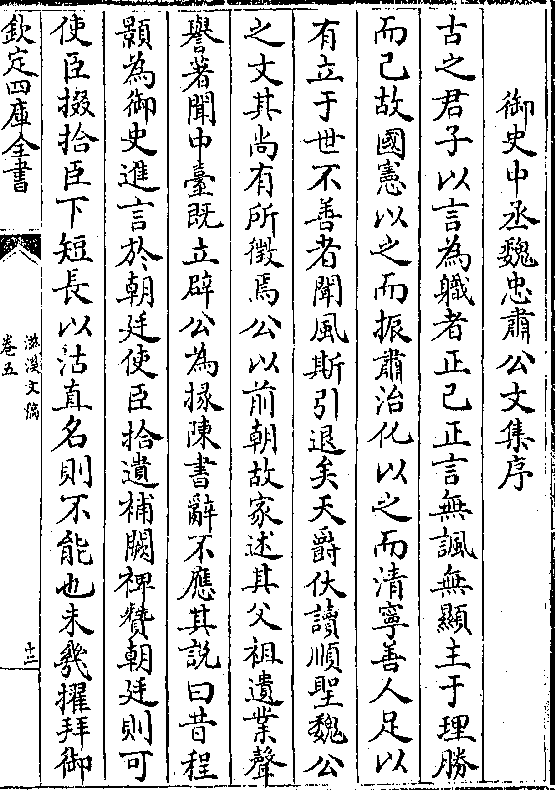 御史中丞魏忠肅公文集序
古之君子以言為職者正己正言無諷無顯主于理勝
而已故國憲以之而振肅治化以之而清寧善人足以
有立于世不善者聞風斯引退矣天爵伏讀順聖魏公
之文其尚有所徵焉公以前朝故家述其父祖遺業聲
譽著聞中臺既立辟公為掾陳書辭不應其說曰昔程
顥為御史進言於朝廷使臣拾遺補闕裨贊朝廷則可
使臣掇拾臣下短長以沽直名則不能也未幾擢拜御
欽定四庫全書
滋溪文稿
卷五
十二